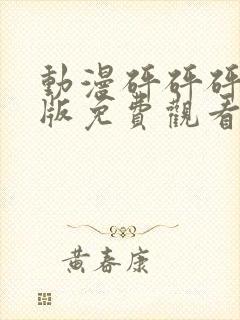 動漫砰砰砰
版免費觀看
黃春康